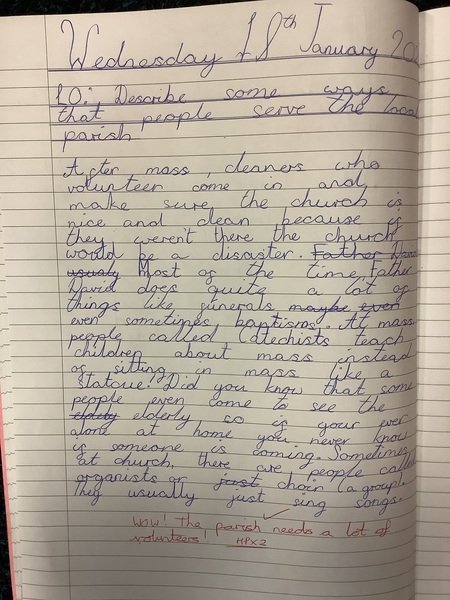 Wednesday 18th January 20
LO: Describe some ways
that people serve the local
parish
After mass, cleaners who
volunteer come in and
make sure the church is
nice and clean because if
they weren't there the church
would be a disaster. Father David
usualy most of the time, Father
David does quite a lot of
things like funerals maybe even
even sometimes baptisms. At mass
people called Catechists teach
children about mass instead
of sitting in mass like a
statoue. Did you know that some
people even come to see the
elderly so if your ever
alone at home you never know
if someone is coming. Sometimes
at church, there are people called
organists or just choir (a group).
They usually just sing songs.
WOW! The parish needs a lot of
volunteers! HPx2